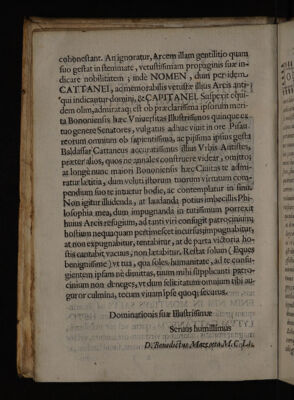 cohonestant. An ignoratur, Arcem illam gentilitio quam
suo gestat in stemmate, vetustissimam propaginis suæ in-
dicare nobilitatem; inde NOMEN, dum per idem
CATTANEI, ac memorabilis vetustæ illius Arcis anti-
qui indicantur domini, & CAPITANEI. Suspexit equi-
dem olim, admiratáq; est ob præclarissima ipsorum meri-
ta Bononiensis hæc Vniuersitas Illustrissimos quinque ex
tuo genere Senatores, vulgatus adhuc viuit in ore Pisau-
reorum omnium ob sapientissima, ac pijssima ipsius gesta
Baldassar Cattaneus accuratissimus illius Vrbis Antistes,
præter alios, quos ne annales construere videar, omitto;
at longè nunc maiori Bononiensis hæc Ciuitas te admi-
ratur lætitia, dum veluti istorum tuorum virtutum com-
pendium suo te intuetur hodie, ac contemplatur in sinu.
Non igitur illudenda, at laudanda potius imbecillis Phi-
losophia mea, dum impugnanda in tutissimum porrexit
huius Arcis refugium, ad tanti viri confugit patrocinium;
hostium nequaquam pertimescet incursus; impugnabitur,
at non expugnabitur, tentabitur, at de parta victoria ho-
stis cantabit vacuus, non lætabitur. Restat solum (Eques
benignissime) vt tua, qua soles humanitate, ad te confu-
gientem ipsam nè dimittas, tuum mihi supplicanti patro-
cinium non deneges, vt dum felicitatum omnium tibi au-
guror culmina, tecum viuam ipse quoq; securus.
Dominationis suæ Illustrissimæ
Seruus humillimus
D. Benedictus Mazzotta M. C. L.